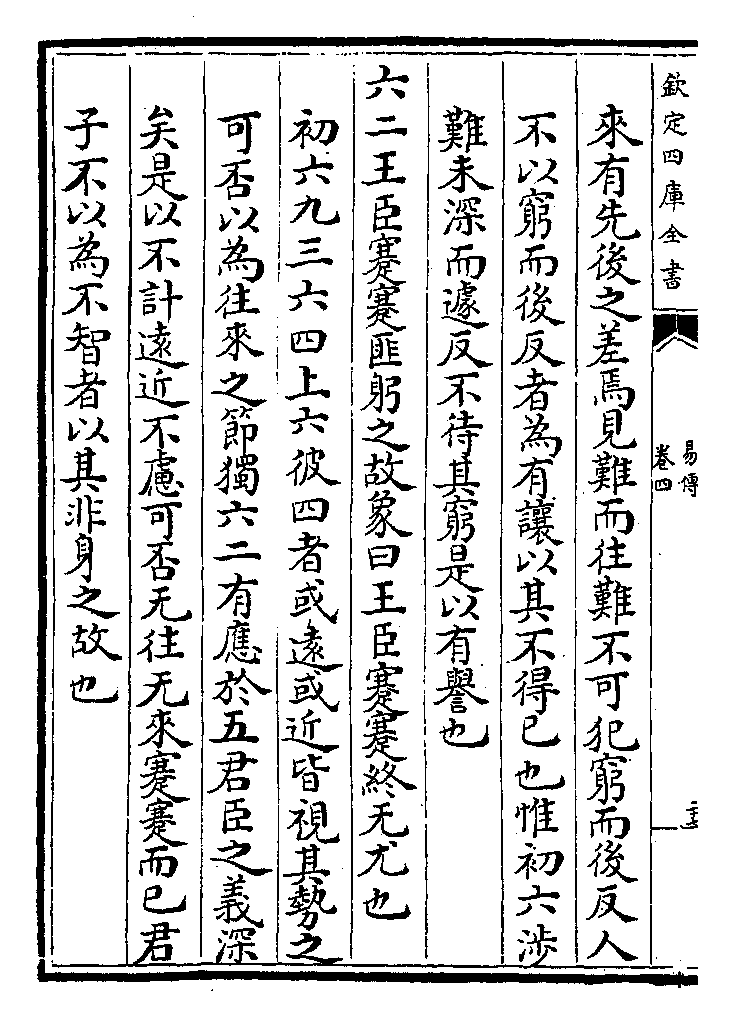 欽定四庫全書
易傳
卷四
來有先後之差焉見難而往難不可犯窮而後反人
不以窮而後反者為有讓以其不得已也惟初六涉
難未深而遽反不待其窮是以有譽也
六二王臣蹇蹇匪躬之故象曰王臣蹇蹇終无尤也
初六九三六四上六彼四者或遠或近皆視其勢之
可否以為往來之節獨六二有應於五君臣之義深
矣是以不計遠近不慮可否无往无來蹇蹇而已君
子不以為不智者以其非身之故也